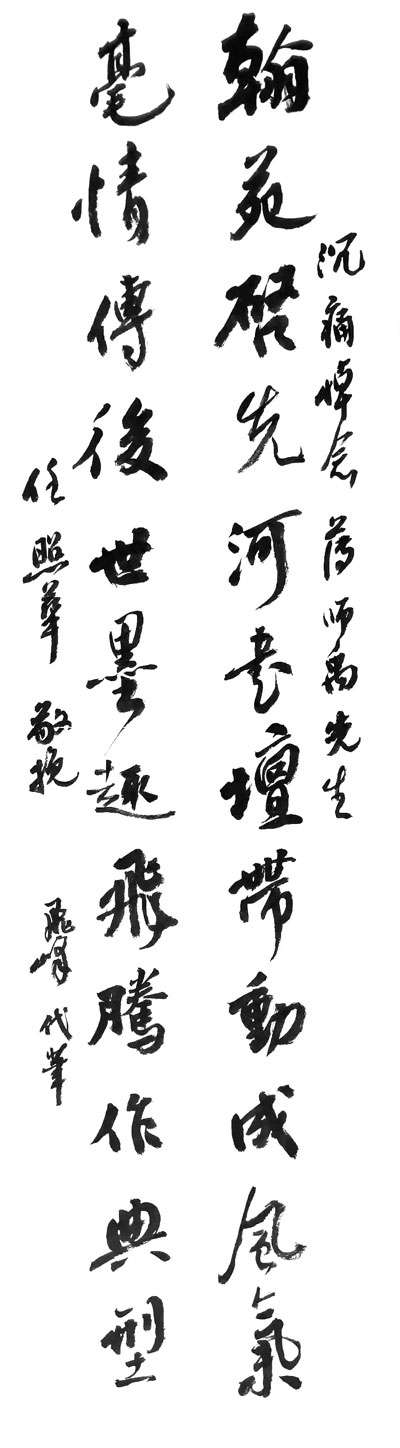 沉痛悼念 薄师禹先生
翰苑啓先河書壇帶動成風氣
毫情傳後世墨趣飛騰作典型
任照華 敬挽
飛峰代筆